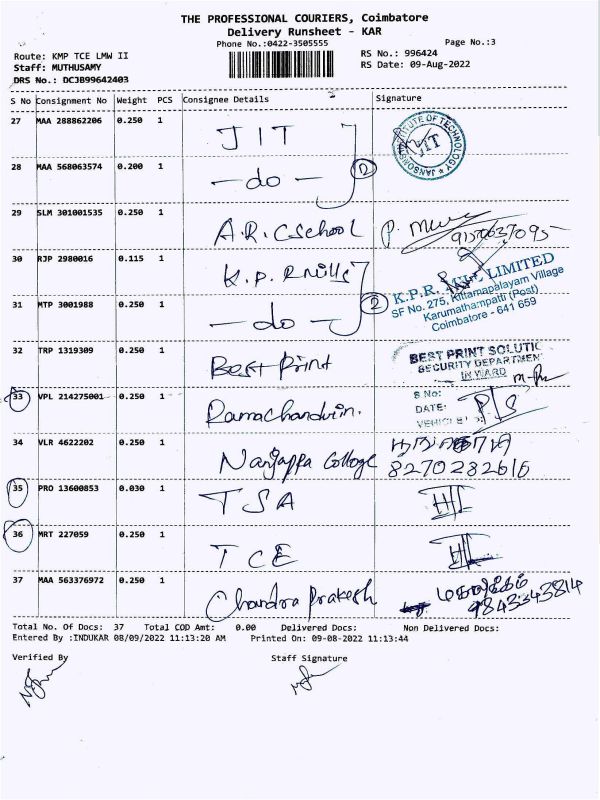 THE PROFESSIONAL COURIERS, Coimbatore
Delivery Runsheet - KAR
Phone No.:0422-3505555
Page No.:3
Route: KMP TCE LMW II
RS No.: 996424
Staff: MUTHUSAMY
RS Date: 09-Aug-2022
DRS No.: DC3B99642403
S No Consignment No Weight PCS Consignee Details Signature
27 MAA 288862206 0.250 1 JIT
INSTITUTE OF TECHNOLOGY JANSONS JIT
28 MAA 568063574 0.200 1 - do - 2
29 SLM 301001535 0.250 1 A.R.C School
30 RJP 2980016 0.115 1 K.P.R mills
K.P.R. MILL LIMITED
SF No. 275, Kittampalayam Village
Karumathampatti (Post)
Coimbatore - 641 659
31 MTP 3001988 0.250 1 - do - 2
32 TRP 1319309 0.250 1 Best Print
BEST PRINT SOLUTI
SECURITY DEPARTMEN
INWARD
33 VPL 214275001 0.250 1 Ramachandrin.
S.No:
DATE:
VEHICLE
34 VLR 4622202 0.250 1 Nanjappa College 8270282616
35 PRO 13600853 0.030 1 TSA
36 MRT 227059 0.250 1 TCE
37 MAA 563376972 0.250 1 Chandra Prakash 9843343814
Total No. Of Docs: 37 Total COD Amt: 0.00 Delivered Docs: Non Delivered Docs:
Entered By :INDUKAR 08/09/2022 11:13:20 AM Printed On: 09-08-2022 11:13:44
Verified By
Staff Signature